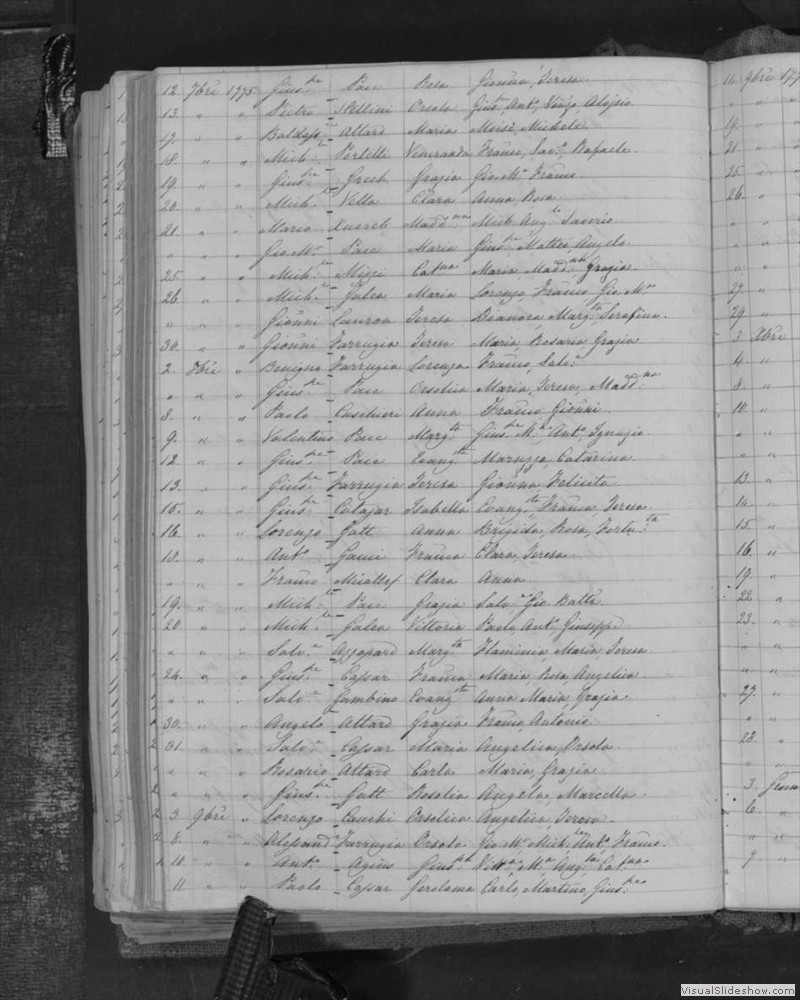 12. 7bre 1775 Gius.pe Pace Rosa Gionna, Teresa
13. " " Pietro Stellini Orsola Gius.e Ant.o Vinc.o Aloisio
17. " " Baldass.e Attard Maria Michele
18. " " Mich.le Portelli Veneranda Franco, Sav.o Rafaele
19. " " Gius.pe Grech Grazia Gio.M.a Franco
20. " " Mich.le Vella Clara Anna, Rosa
21. " " Mario Xuereb Madd.na Mich. Ang.lo Saverio
" " " Gio.M.a Pace Maria Gius.pe Matteo, Angelo
25. " " Mich.le Mizzi Cat.na Maria Madd.na Grazia
26. " " Mich.le Galea Maria Lorenzo, Franco, Gio. M.a
" " " Gionni Cauron Teresa Dianora, Marg.ta Serafina
30. " " Gionni Farrugia Teresa Maria Rosaria, Grazia
2. " Benigno Farrugia Lorenza Franco, Salv.e
" " " Gius.pe Pace Orsolica Maria, Teresa, Madd.na
8. " " Paolo Cuschieri Anna Franco Gionni
9. " " Valentino Pace Marg.ta Gius.pe M.a Ant.o Ignazio
12. " " Gius.pe Pace Evang.ta Maruzza, Catarina
13. " " Gius.pe Farrugia Teresa Gionna Felicita
15. " " Gius.pe Calajar Isabella Evang.ta Franca Teresa
16. " " Lorenzo Gatt Anna Brigida, Rosa, Fortu.ta
" " Ant.o Gauci Franca Clara, Teresa
" " " Franco Micallef Clara Anna
19. " " Mich.le Pace Grazia Salv.e Gio. Batta
20. " " Mich.le Galea Vittoria Paolo, Ant.o Giuseppe
" " " Salv.e Azzopard Marg.ta Flaminia, Maria Teresa
24. " " Gius.pe Cassar Franca Maria, Rosa, Angelica
" " " Salv.e Gambino Evang.ta Anna Maria, Grazia
30. " " Angelo Attard Grazia Franco, Antonio
31. " " Salv.e Cassar Maria Angelica, Orsola
" " " Rosario Attard Carla Maria, Grazia
" " " Gius.pe Gatt Rosalia Angelo, Marcello
3. 9bre " Lorenzo Cauchi Orsolica Angelica, Teresa
8. " " Alessand.o Farrugia Orsola Gio. M.a Mich.le Ant.o Franco
10. " " Ant.o Agius Gius.pa Vitt.a M.a Ang.ca Cat.na
11 " " Paolo Cassar Gerolama Carlo, Martino, Gius.pe
14 9bre 177
19.
21.
25.
26.
27.
29.
3 Xbre
4.
8.
10.
13.
14.
15.
16.
19.
22.
23.
27.
28.
3.
6.
9
VisualSlideshow.com